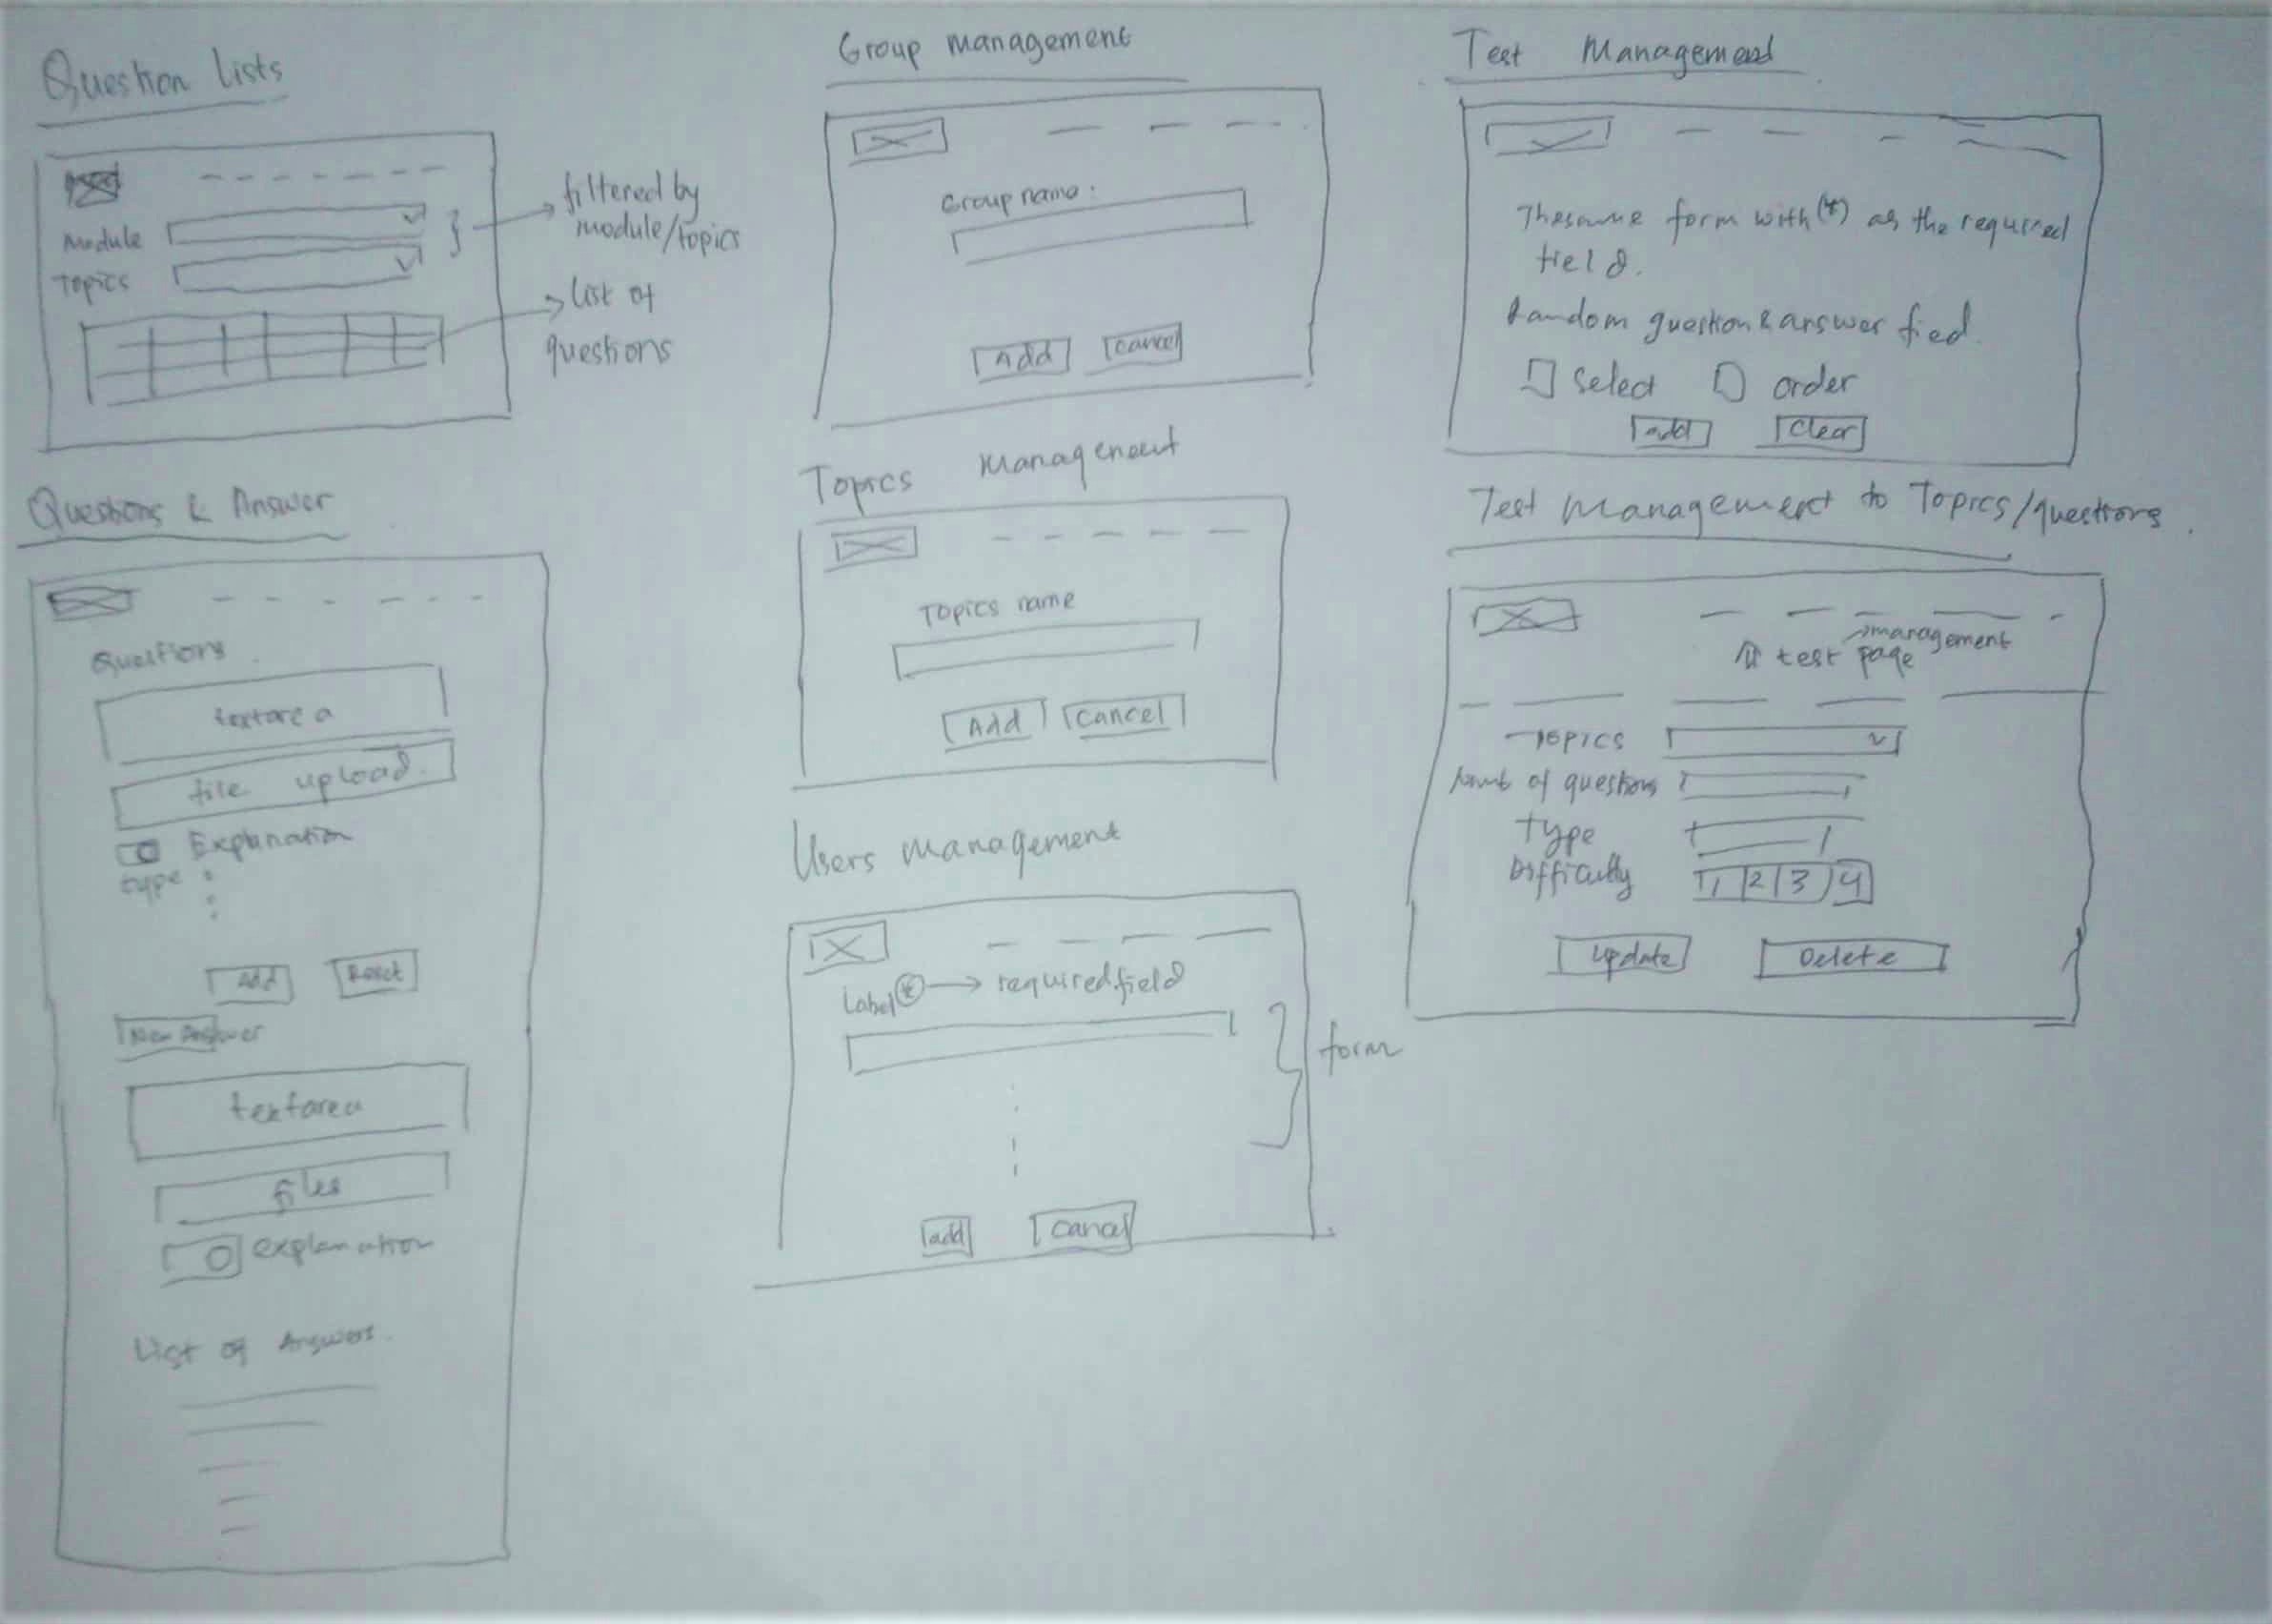 Question lists
Module
Topics
filtered by
module/topics
list of
questions
Questions & Answer
Questions
textarea
file upload.
Explanation
type
Add
Reset
New Answer
textarea
files
explanation
List of Answers.
Group management
Group name :
Add
Cancel
Topics Management
Topics name
Add
Cancel
Users Management
Label * → required field
form
add
Cancel
Test Management
The same form with (*) as the required
field.
Random question & answer fied.
select
order
add
Clear
Test Management to Topics/questions.
management
test page
Topics
of questions
Type
Difficulty
1 2 3 4
Update
Delete